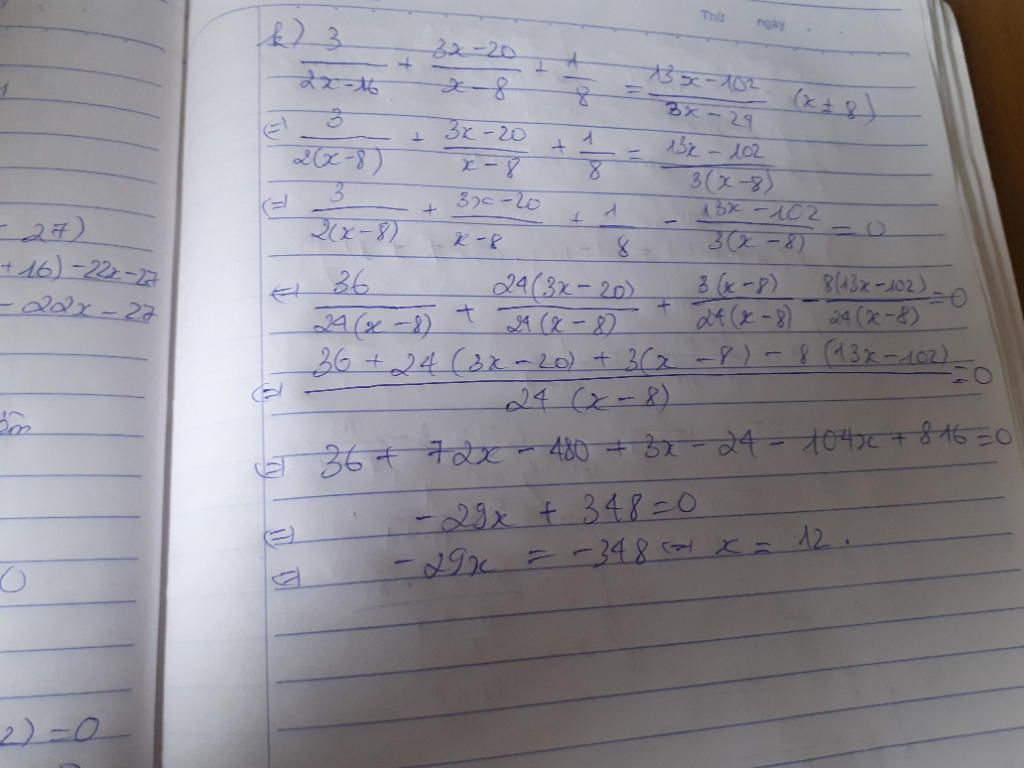 Thứ ngày
k) 3/(2x-16) + (3x-20)/(x-8) + 1/8 = (13x-102)/(3x-24) (x ≠ 8)
⇔ 3/(2(x-8)) + (3x-20)/(x-8) + 1/8 = (13x-102)/(3(x-8))
⇔ 3/(2(x-8)) + (3x-20)/(x-8) + 1/8 - (13x-102)/(3(x-8)) = 0
⇔ 36/(24(x-8)) + (24(3x-20))/(24(x-8)) + (3(x-8))/(24(x-8)) - (8(13x-102))/(24(x-8)) = 0
⇔ (36 + 24(3x-20) + 3(x-8) - 8(13x-102))/(24(x-8)) = 0
⇔ 36 + 72x - 480 + 3x - 24 - 104x + 816 = 0
⇔ -29x + 348 = 0
⇔ -29x = -348 ⇔ x = 12.
- 27)
+16) -22x-27
- 22x - 27
2) = 0